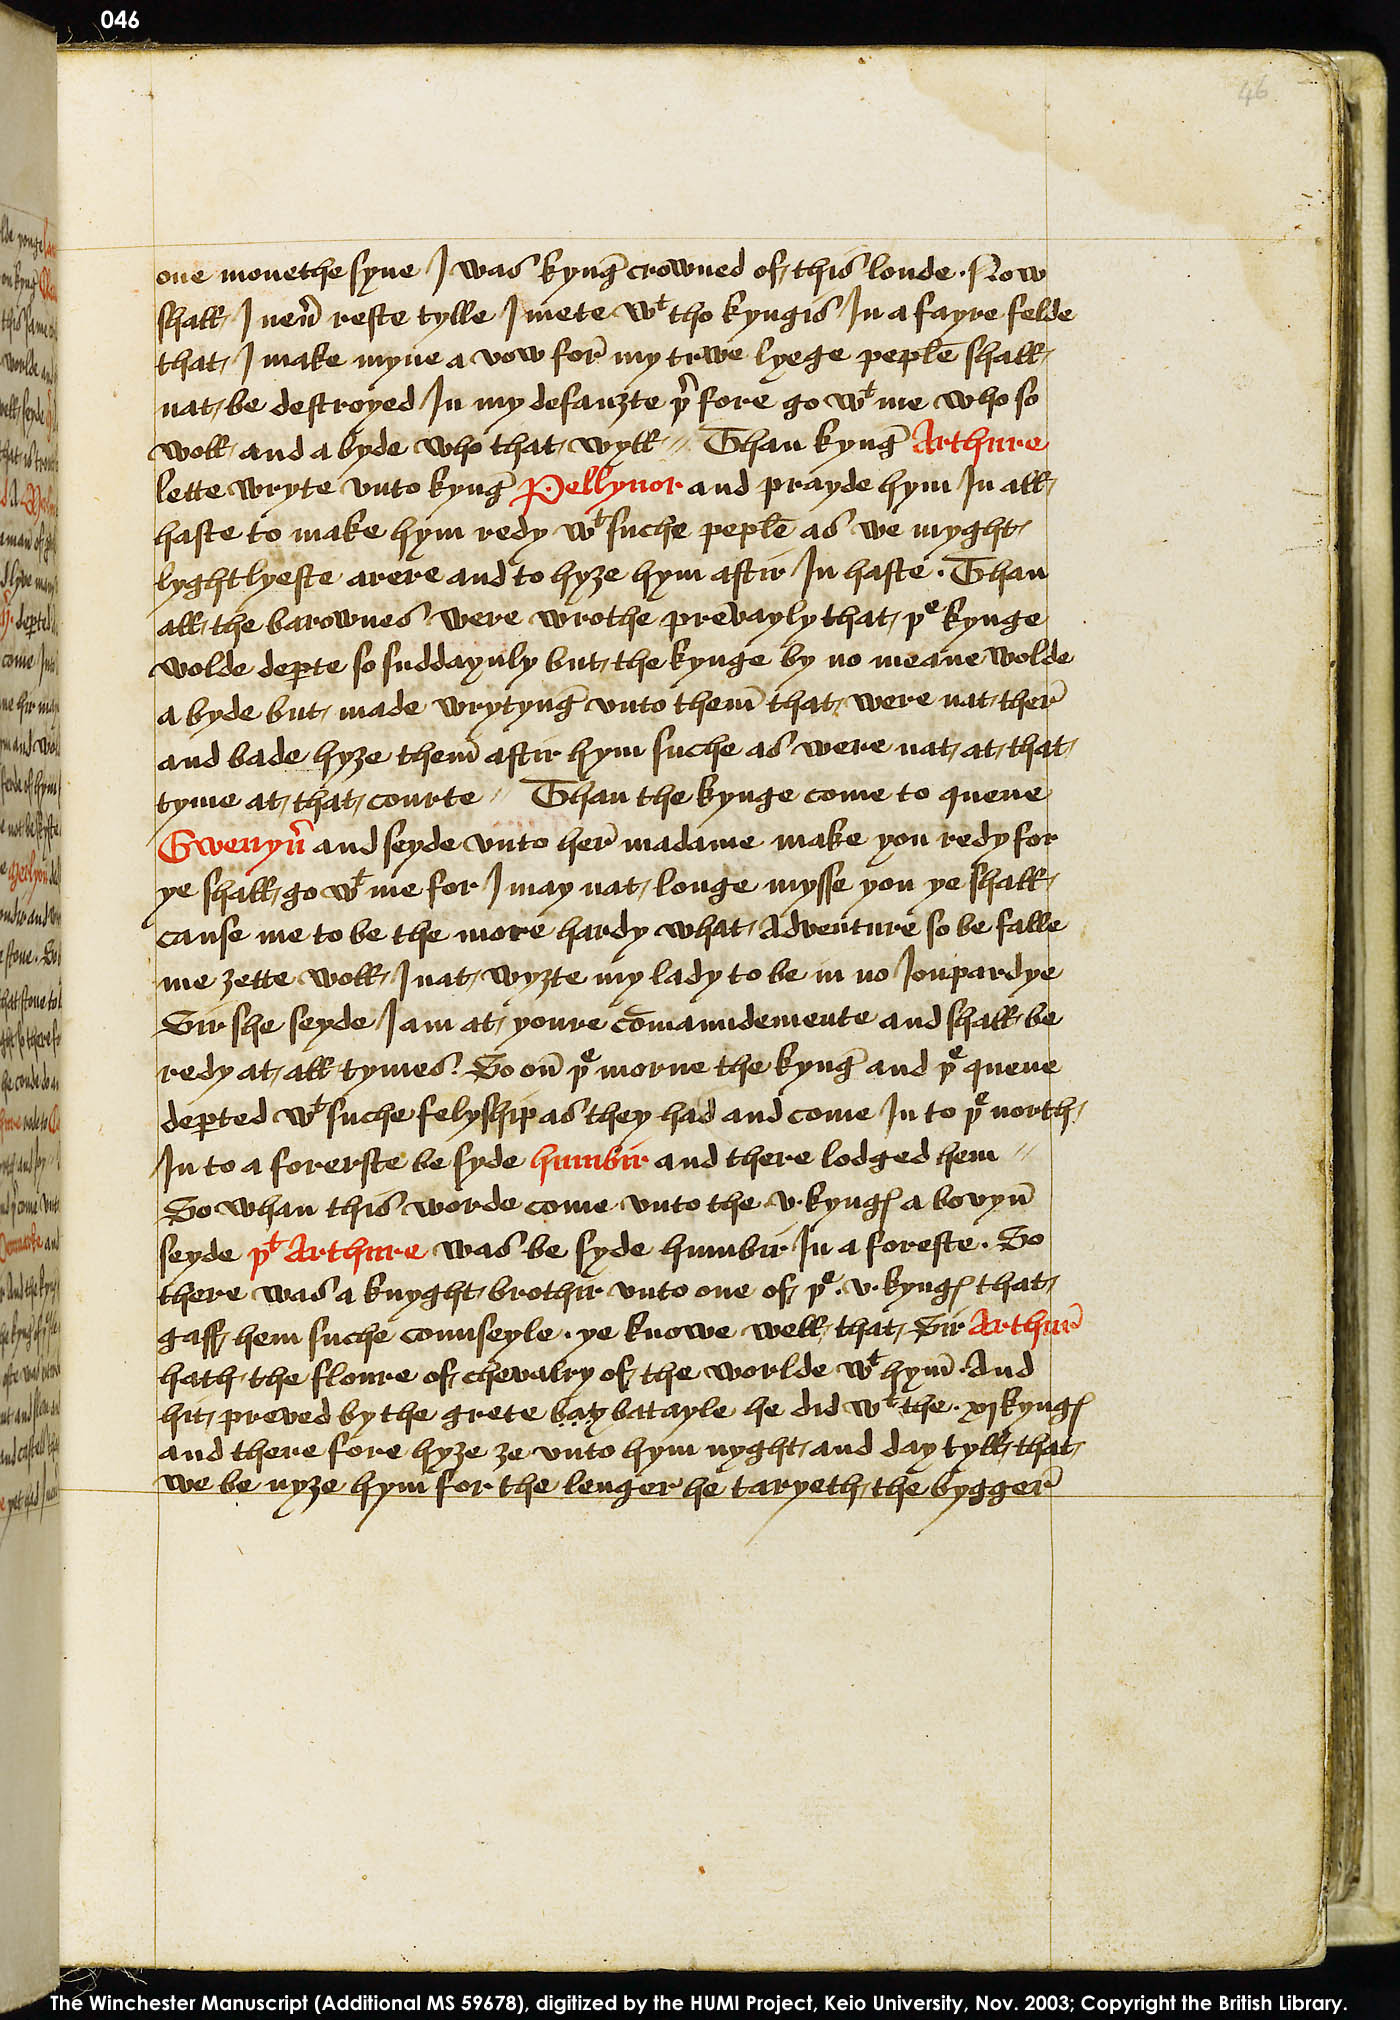 046
46
one monethe syne I was kynḡ crowned of this londe · Now
shall I neũ reste tylle I mete wᵗ tho kyngis In a fayre felde
that I make myne a vow for̄ my trwe lyege peplē shall
nat be destroyed In my defauȝte p̃ fore go wᵗ me who so
woll and a byde who that wyll // Than kynḡ Arthure
lette wryte vnto kynḡ Pellynor and prayde hym In all
haste to make hym redy wᵗ suche peplē as we myght
lyghtlyeste arere and to hyȝe hym aftir In haste · Than
all the barownes were wrothe prevayly that þᵉ kynge
wolde deꝑte so suddaynly but the kynge by no meane wolde
a byde but made wrytynḡ vnto them̄ that were nat ther̄
and bade hyȝe them̄ aftir hym suche as were nat at that
tyme at that courte // Than the kynge come to quene
Gwenyũ and seyde vnto her̄ madame make you redy for
ye shall go wᵗ me for I may nat longe mysse you ye shall
cause me to be the more hardy what adventure so be falle
me ȝette woll I nat wyȝte my lady to be in no Joupardye
Sir she seyde I am at youre cōmaundemente and shall be
redy at all tymes · So on̄ þᵉ morne the kynḡ and þᵉ quene
deꝑted wᵗ suche felyship as they had and come In to þᵉ north
In to a forerste be syde humbir and there lodged hem //
So whan this worde come vnto the · v · kyngꝭ a bovyn̄
seyde þᵗ Arthure was be syde humbir In a foreste · So
there was a knyght brothir vnto one of þᵉ · v · kyngꝭ that
gaff hem suche counseyle · ye knowe well that Sir Arthur̄
hath the floure of chevalry of the worlde wᵗ hym̄ · And
hit preved by the grete baty batayle he did wᵗ the · xj kyngꝭ
and there fore hyȝe ȝe vnto hym nyght and day tyll that
we be nyȝe hym for the lenger he taryeth the bygger̄
The Winchester Manuscript (Additional MS 59678), digitized by the HUMI Project, Keio University, Nov. 2003; Copyright the British Library.